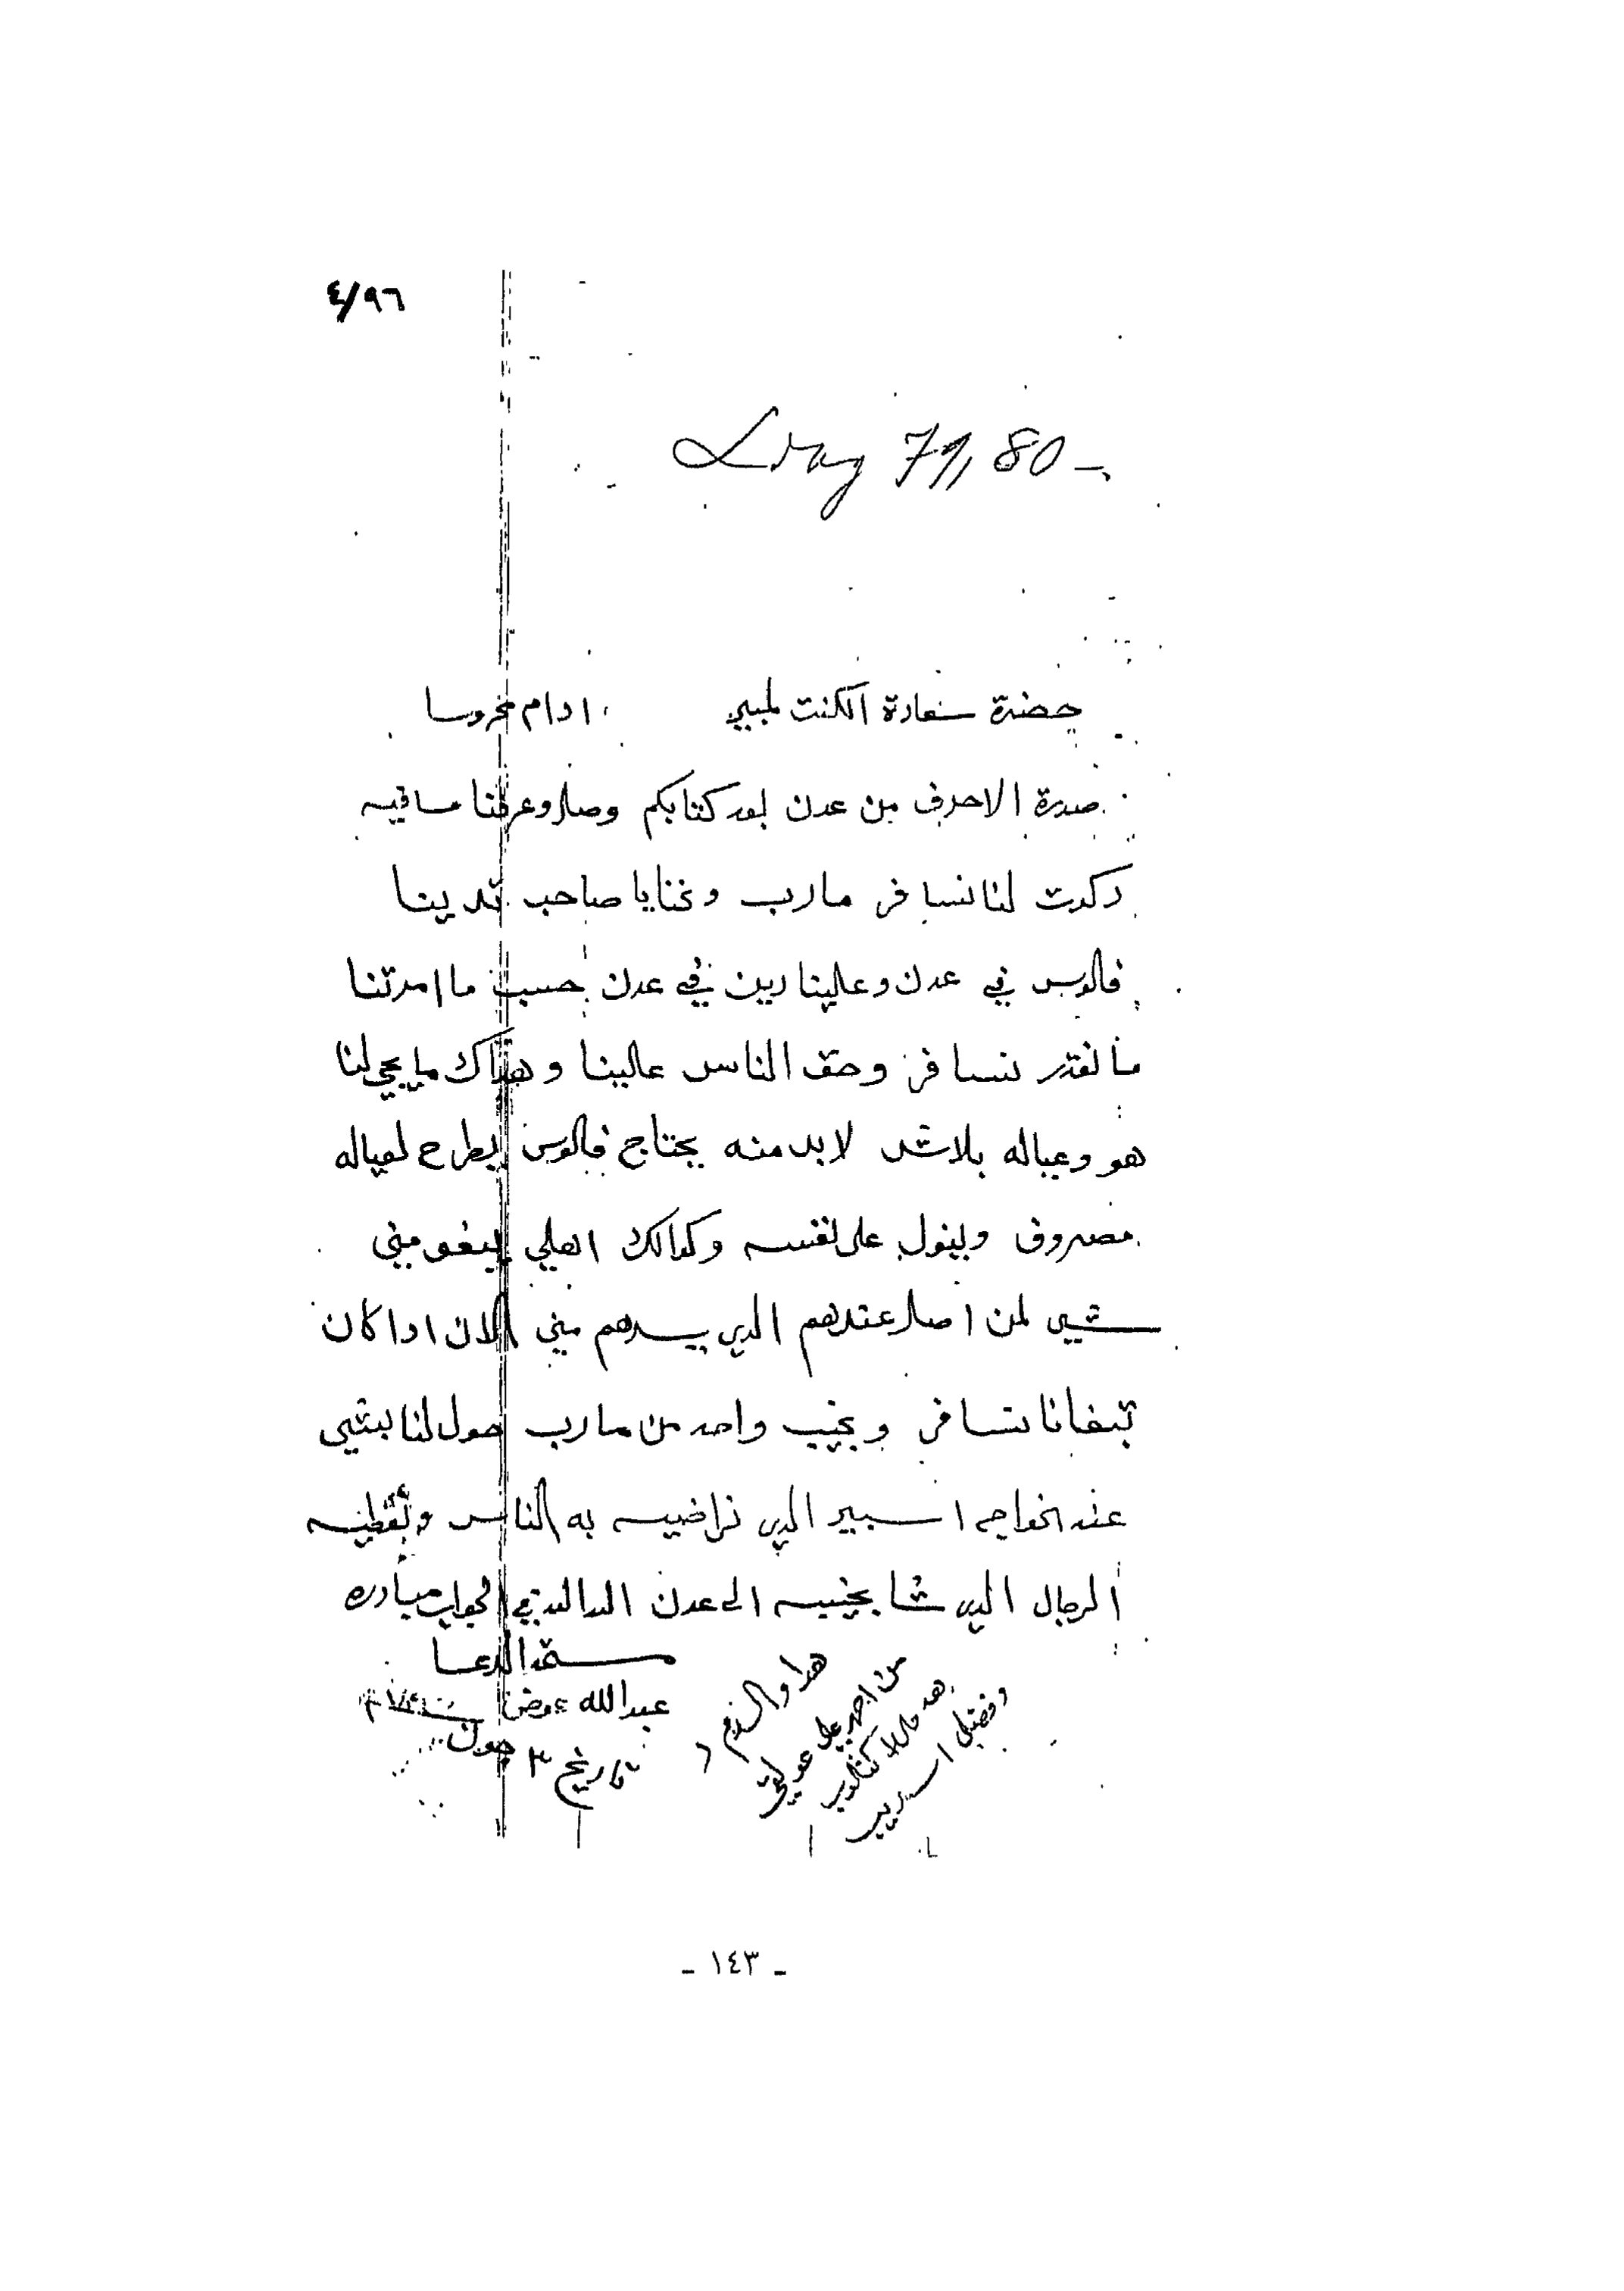 ٤/٩٦
79, 80 -
حضرة سعادة الكنت لمبيرج ادام محروسا
صدرة الاحرف من عدن بعد كتابكم وصل وعرفنا ما فيه
دكرت لنا نسافر مارب ونحنا يا صاحب تدينا
فالوس في عدن وعلينا دين في عدن حسب ما امرتنا
ما نقدر نسافر وحق الناس عالينا وهداك ما يجي لنا
هو وعياله بلاش لابد منه يحتاج فالوس يطرح لعياله
مصروف و على نفسه وكدالك اهلي يبغو مني
شي لمن اصل عندهم الدي يسدهم مني الان ادا كان
تبغانا نسافر ونجيب واحد من مارب حول لنا بشي
عند الخواجه اسبير الدي نراضيه به الناس ونعطيه
الرجال الدي شا يجيبه الى عدن الله الله في الجواب مبادره
مستمد الدعا
عبدالله عوض
تاريخ ٣ جون
هدا والسلام
من اجهر على عولقي
هد حال
وفضل
- ١٤٣ -